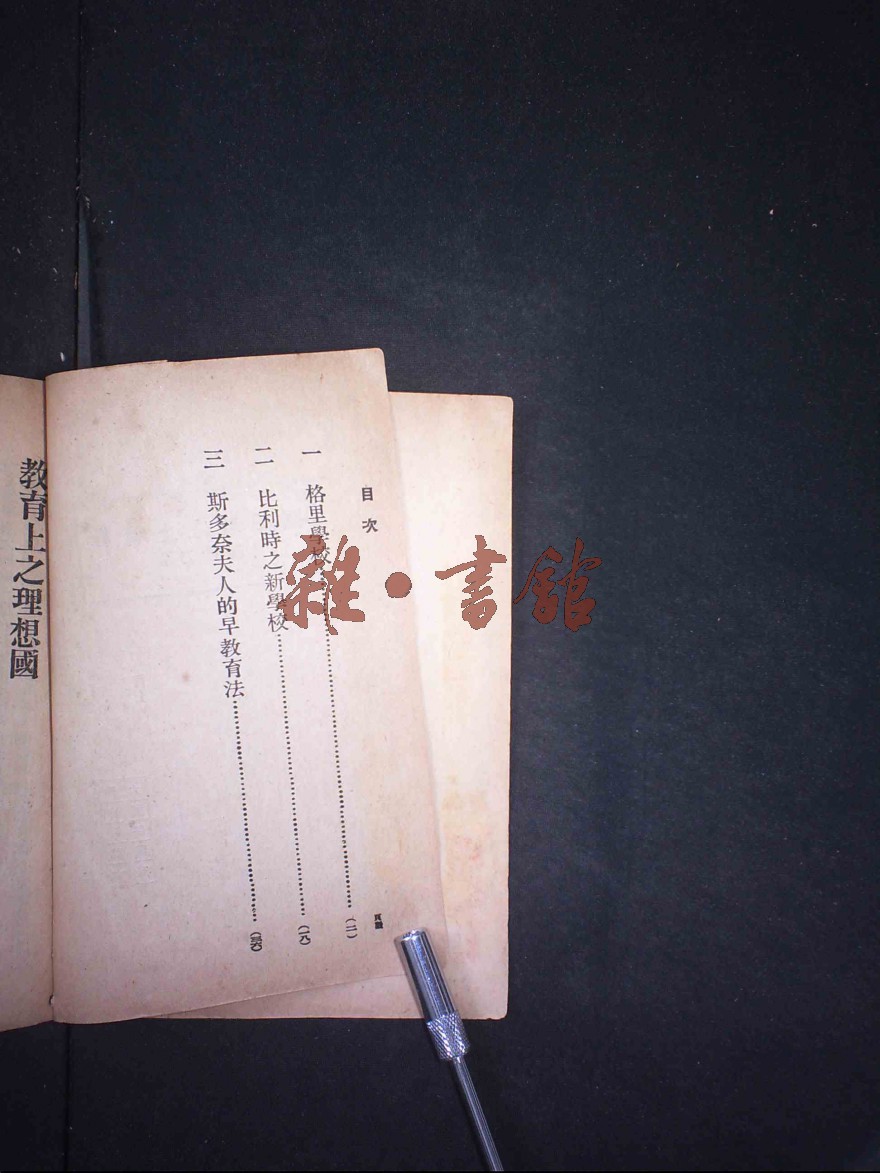 目次
頁數
一 格里學校……(一)
二 比利時之新學校……(一八)
三 斯多奈夫人的早教育法……(三六)
教育上之理想國
雜·書館